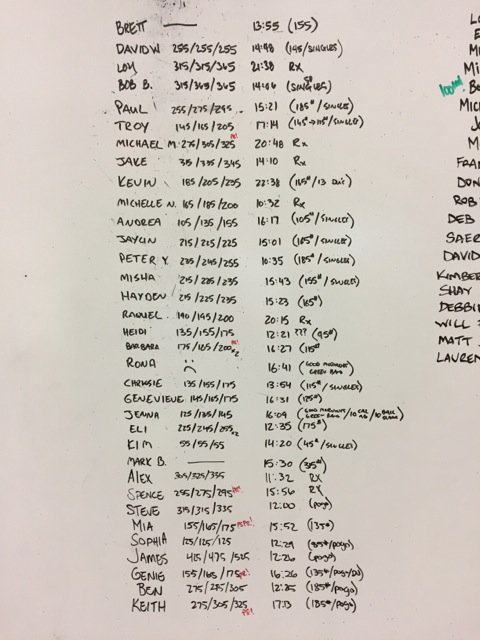 BRETT — 13:55 (155)
DAVID W 255/255/255 14:48 (145/SINGLES)
LOY 315/315/365 21:38 RX
BOB B. 315/365/365 14:06 (SINGLES)
PAUL 255/275/295 15:21 (185#/SINGLES)
TROY 145/165/205 17:14
MICHAEL M. 275/305/325 PR! 20:48 Rx
JAKE 315/335/345 14:10 Rx
KEVIN 185/205/235 22:38
MICHELLE N. 165/185/200 10:32 Rx
ANDREA 105/135/155 16:17 (105#/SINGLES)
JAYLIN 215/225/225 15:01 (185#/SINGLES)
PETER Y. 235/245/255 10:35 (185#/SINGLES)
MISHA 215/225/235 15:43 (155#/SINGLES)
HAYDEN 215/225/235 15:23 (165#)
RAQUEL 190/195/200 20:15 Rx
HEIDI 135/155/175 12:21 ??? (95#)
BARBARA 175/185/200x2 PR! 16:27 (115#)
RONA 16:41 (GOOD MORNINGS GREEN BAND)
CHRISSIE 135/155/175 13:54 (115#/SINGLES)
GENEVIEVE 145/165/175 16:31 (125#)
JENNA 125/135/145 16:09 (GOOD MORNINGS GREEN BAND/10 CAL/10 BALL SLAMS)
ELI 225/245/255x2 12:35 (175#)
KIM 55/55/55 14:20 (45#/SINGLES)
MARK B. — 15:30
ALEX 305/325/335 11:32 RX
SPENCE 255/275/295 PR! 15:56 RX
STEVE 315/315/335 12:00 (pogo)
MIA 155/165/175 15:52 (135#)
SOPHIA 125/125/125 12:29 (85#/pogo)
JAMES 415/475/525 12:26 (pogo)
GENIE 155/165/175 PR! 16:26 (135#/pogo/DU)
BEN 275/285/305 12:25 (185#/pogo)
KEITH 275/305/325 PR! 17:13 (185#/pogo)
100M
FRAN
DON
ROB
DEB
SAER
DAVID
KIMBER
SHAY
DEBBI
WILL
MATT
LAUREN